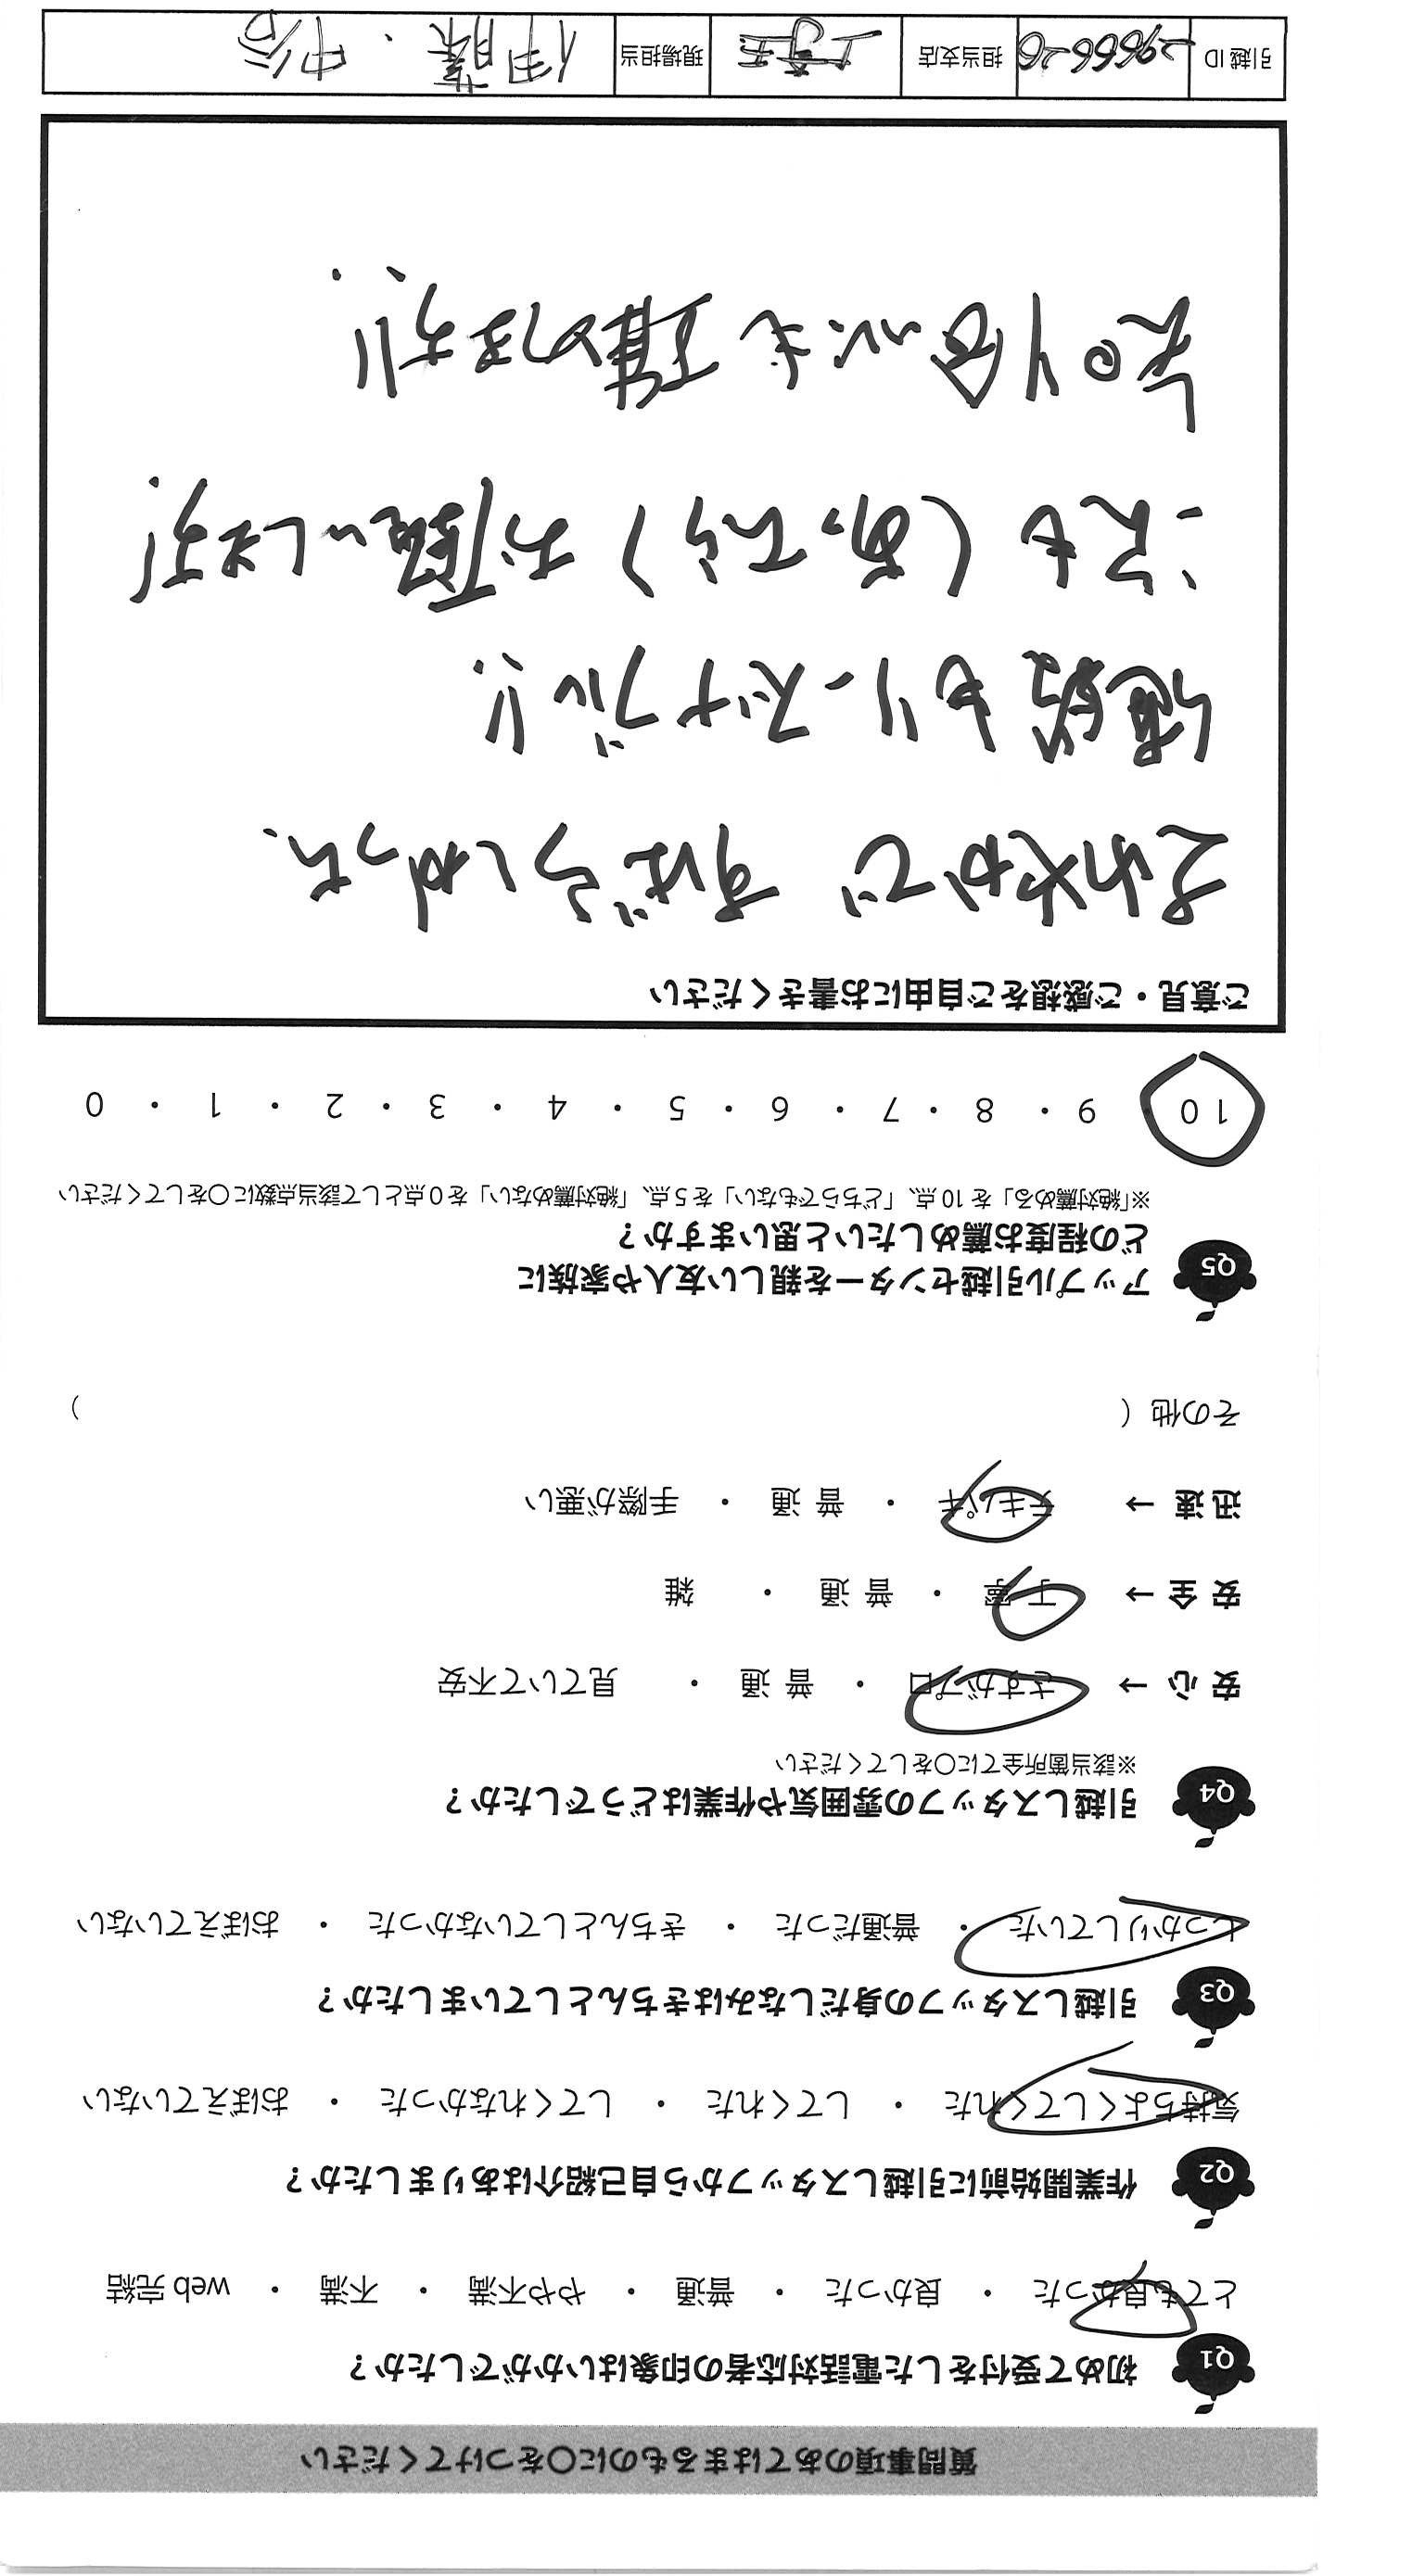 質問事項のあてはまるものに〇をつけてください
Q1 初めて受付をした電話対応者の印象はいかがでしたか？
とても良かった ・ 良かった ・ 普通 ・ やや不満 ・ 不満 ・ web 完結
Q2 作業開始前に引越しスタッフから自己紹介はありましたか？
気持ちよくしてくれた ・ してくれた ・ してくれなかった ・ おぼえていない
Q3 引越しスタッフの身だしなみはきちんとしていましたか？
しっかりしていた ・ 普通だった ・ きちんとしていなかった ・ おぼえていない
Q4 引越しスタッフの雰囲気や作業はどうでしたか？
※該当箇所全てに〇をしてください
安 心 → さすがプロ ・ 普 通 ・ 見ていて不安
安 全 → 丁 寧 ・ 普 通 ・ 雑
迅 速 → テキパキ ・ 普 通 ・ 手際が悪い
その他（ ）
Q5 アップル引越センターを親しい友人や家族に
どの程度お薦めしたいと思いますか？
※「絶対薦める」を 10 点、「どちらでもない」を 5 点、「絶対薦めない」を 0 点として該当点数に〇をしてください
10 ・ 9 ・ 8 ・ 7 ・ 6 ・ 5 ・ 4 ・ 3 ・ 2 ・ 1 ・ 0
ご意見・ご感想をご自由にお書きください
さわやかで すばらしかった。
値段もリーズナブル!!
次も（あったら）お願いします!
知り合いにも薦めます!!
引越 ID 29666-26 担当支店 埼玉 現場担当 伊藤・中谷